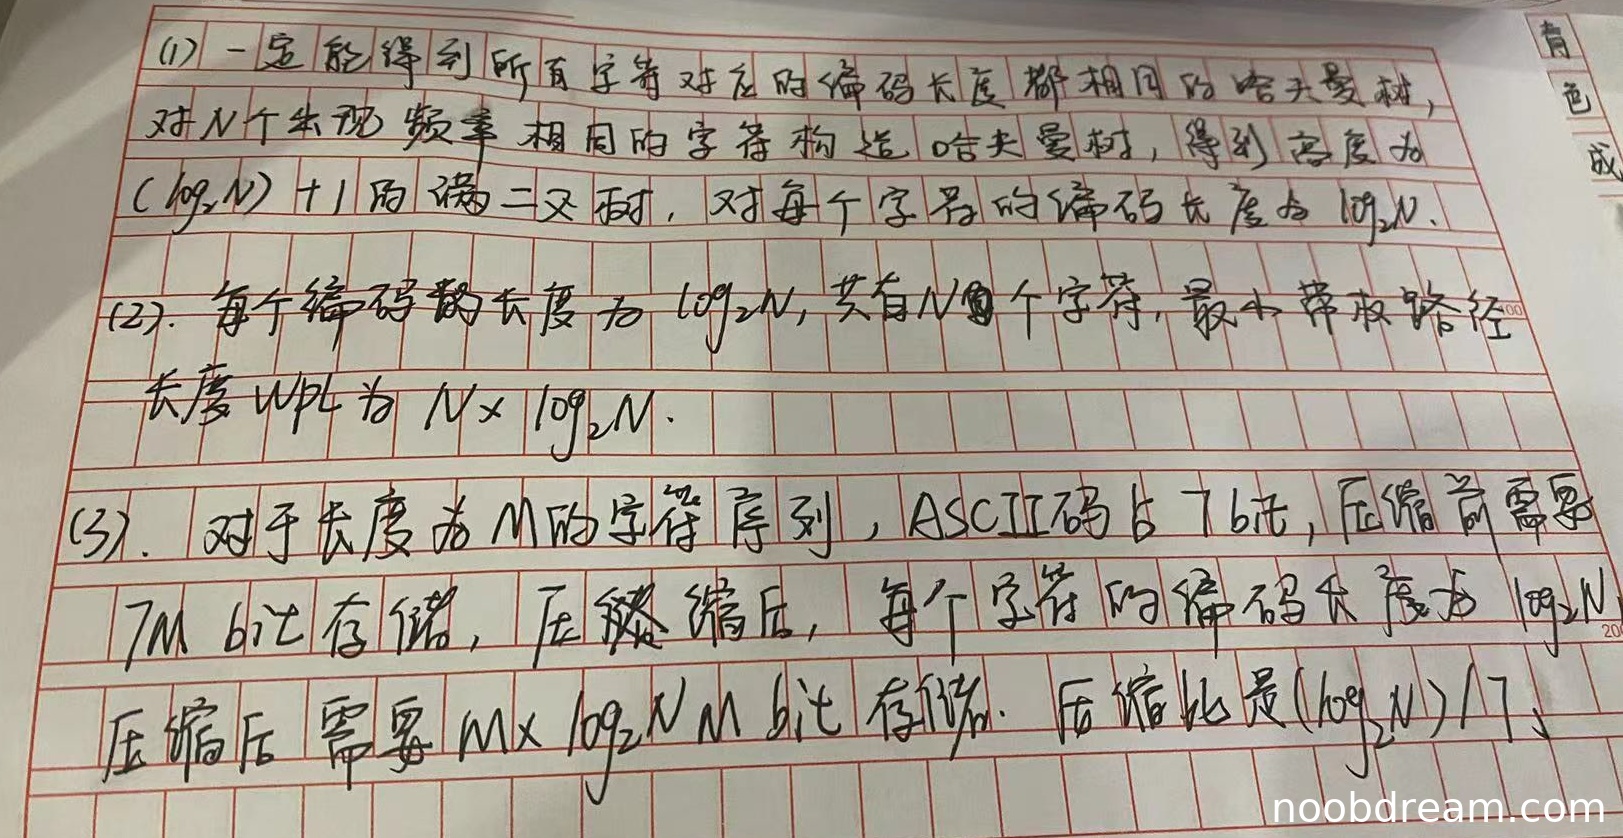 (1) 一定能得到所有字符对应的编码长度都相同的哈夫曼树,
对N个出现频率相同的字符构造哈夫曼树,得到高度为
(log₂N)+1的满二叉树,对每个字符的编码长度为log₂N.
(2). 每个编码的长度为log₂N,共有N个字符,最小带权路径
长度WPL为N×log₂N.
(3). 对于长度为M的字符序列,ASCII码占7bit,压缩前需要
7M bit存储,压缩后,每个字符的编码长度为log₂N,
压缩后需要M×log₂N M bit存储.压缩比是(log₂N)/7、
青
色
成
200
noobdream.com